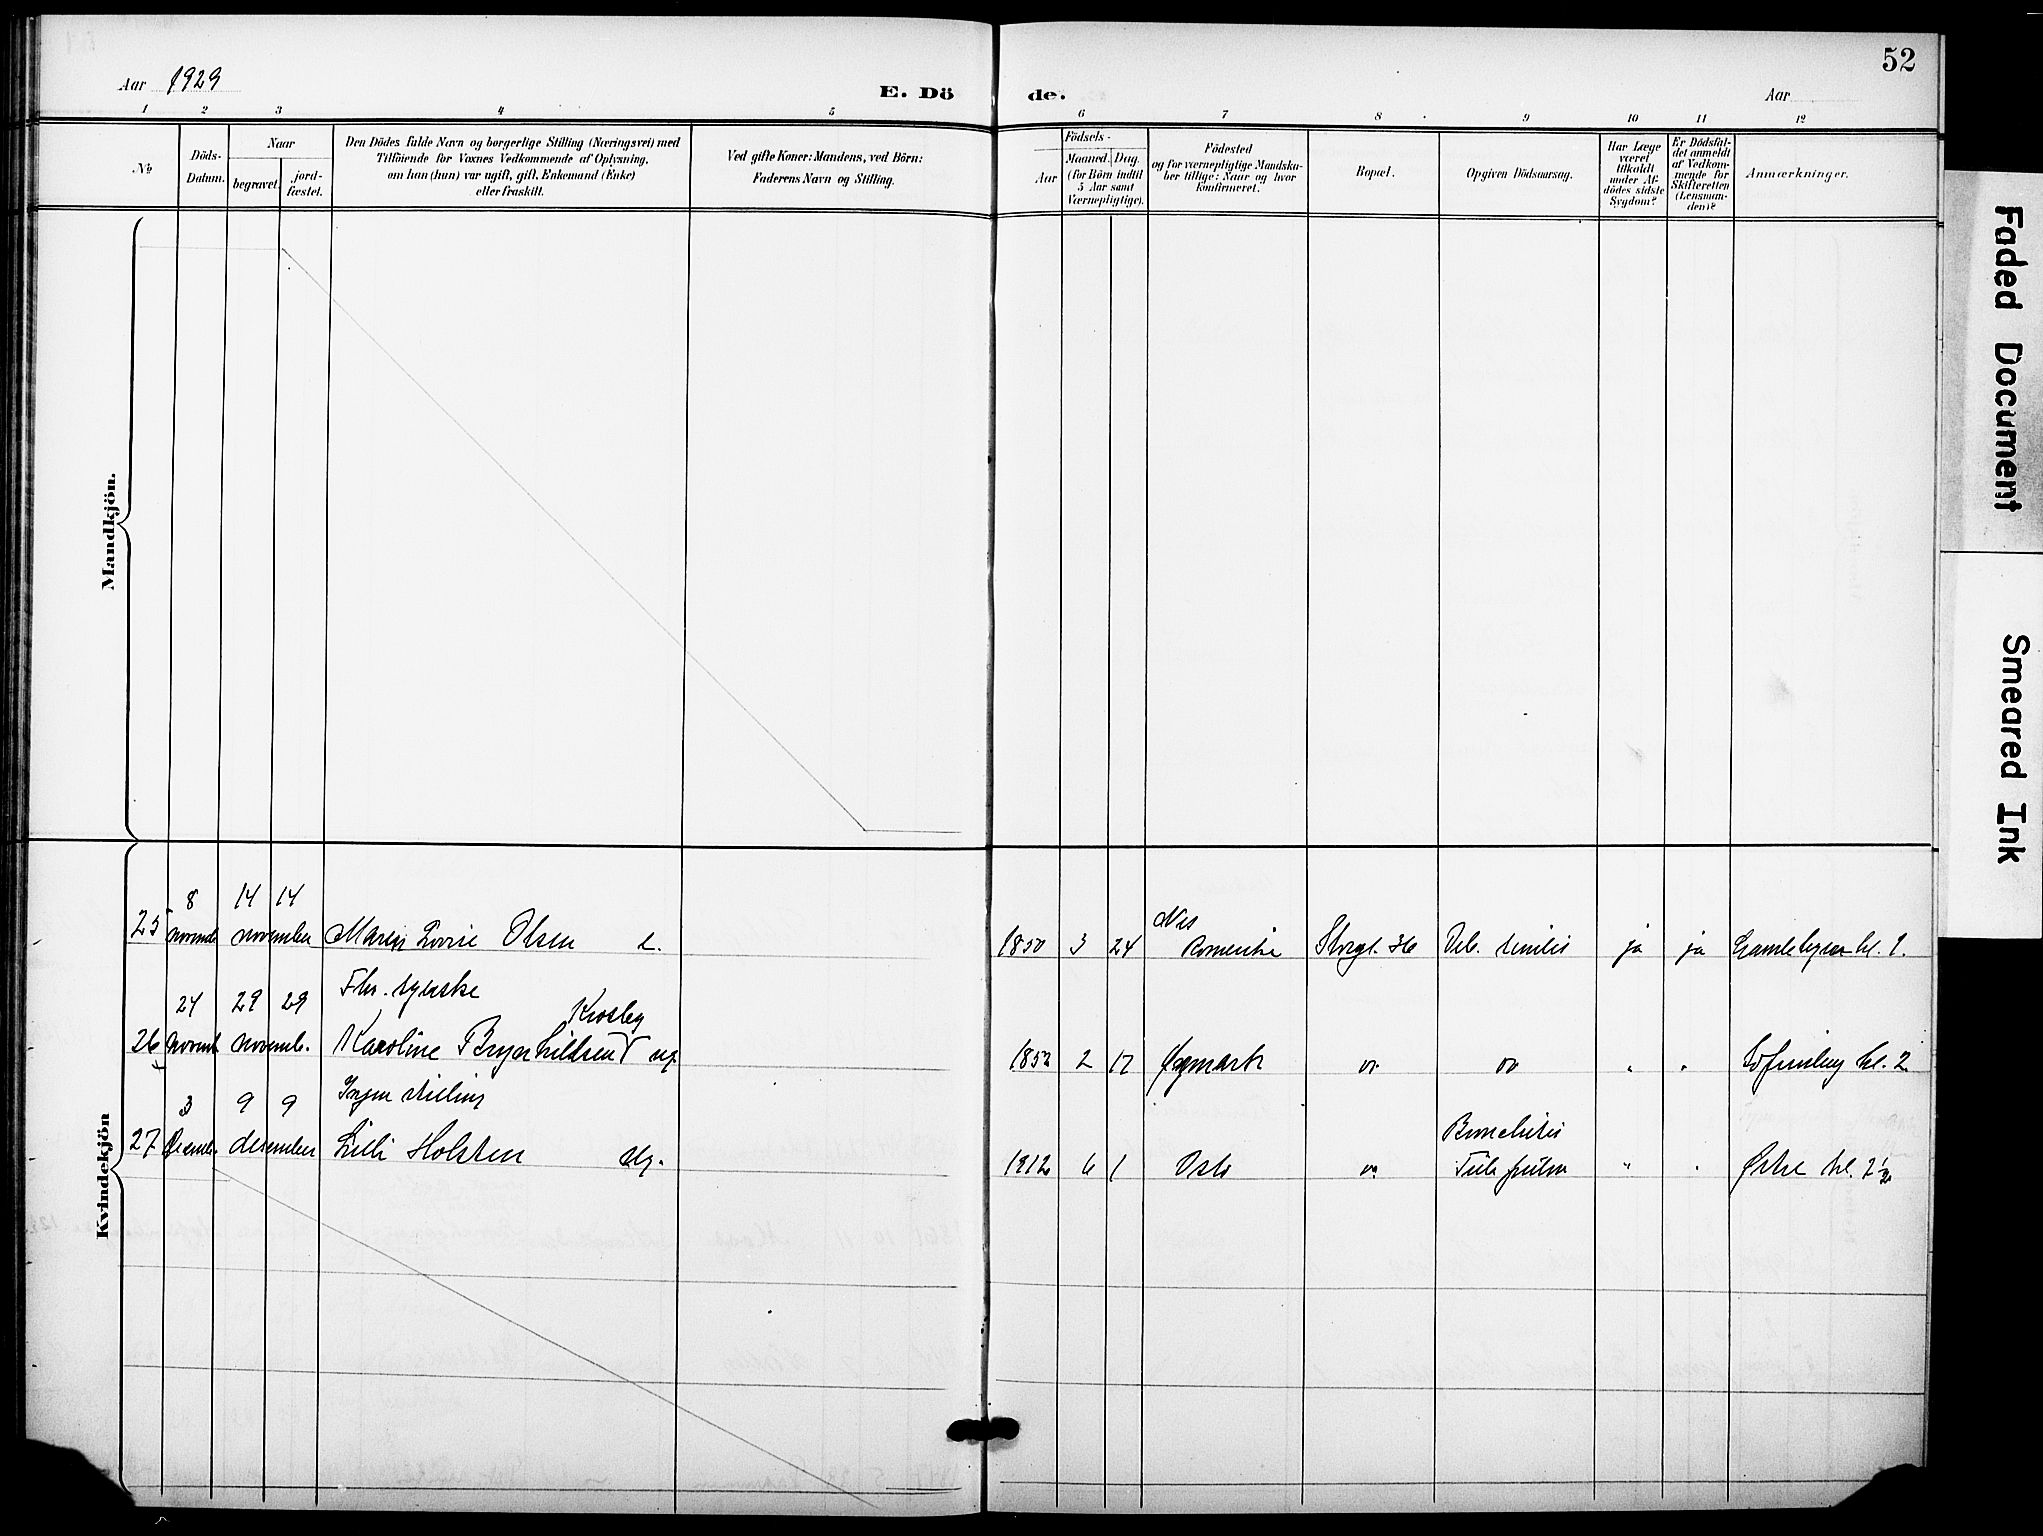 52
Aar 1929
E. Dö de.
Aar
1 2 3 4 5 6 7 8 9 10 11 12
No
Döds-Datum.
Naar
begravet.
jord-fæstet.
Den Dödes fulde Navn og borgerlige Stilling (Næringsvei) med
Tilföiende for Voxnes Vedkommende af Oplysning,
om han (hun) var ugift, gift, Enkemand (Enke)
eller fraskilt.
Ved gifte Koner: Mandens, ved Börn:
Faderens Navn og Stilling.
Födsels-
Aar
Maaned. Dag.
(for Börn indtil
5 Aar samt
Værnepligtige).
Födested
og for værnepligtige Mandska-
ber tillige: Naar og hvor
konfirmeret.
Bopæl.
Opgiven Dödsaarsag.
Har Læge
været
tilkaldt
under Af-
dödes sidste
Sygdom?
Er Dödsfal-
det anmeldt
af Vedkom-
mende for
Skifteretten
(Lensman-
den)?
Anmærkninger.
Mandkjön.
Kvindekjön
8 14 14
25 november Olsen e.
Nes
1850 3 24 Romerike Storgt. 36 ja ja Gamlebyen kl. 1.
24 29 29
Krosby
26 novemb. Karoline Brynhildsen ug.
1852 2 17 Øymark " " kl. 2
3 9 9
27 desember Lilli Holsten ug.
Bronchitis
1912 6 1 Oslo " " Østre kl. 2 1/2
Faded Document
Smeared Ink